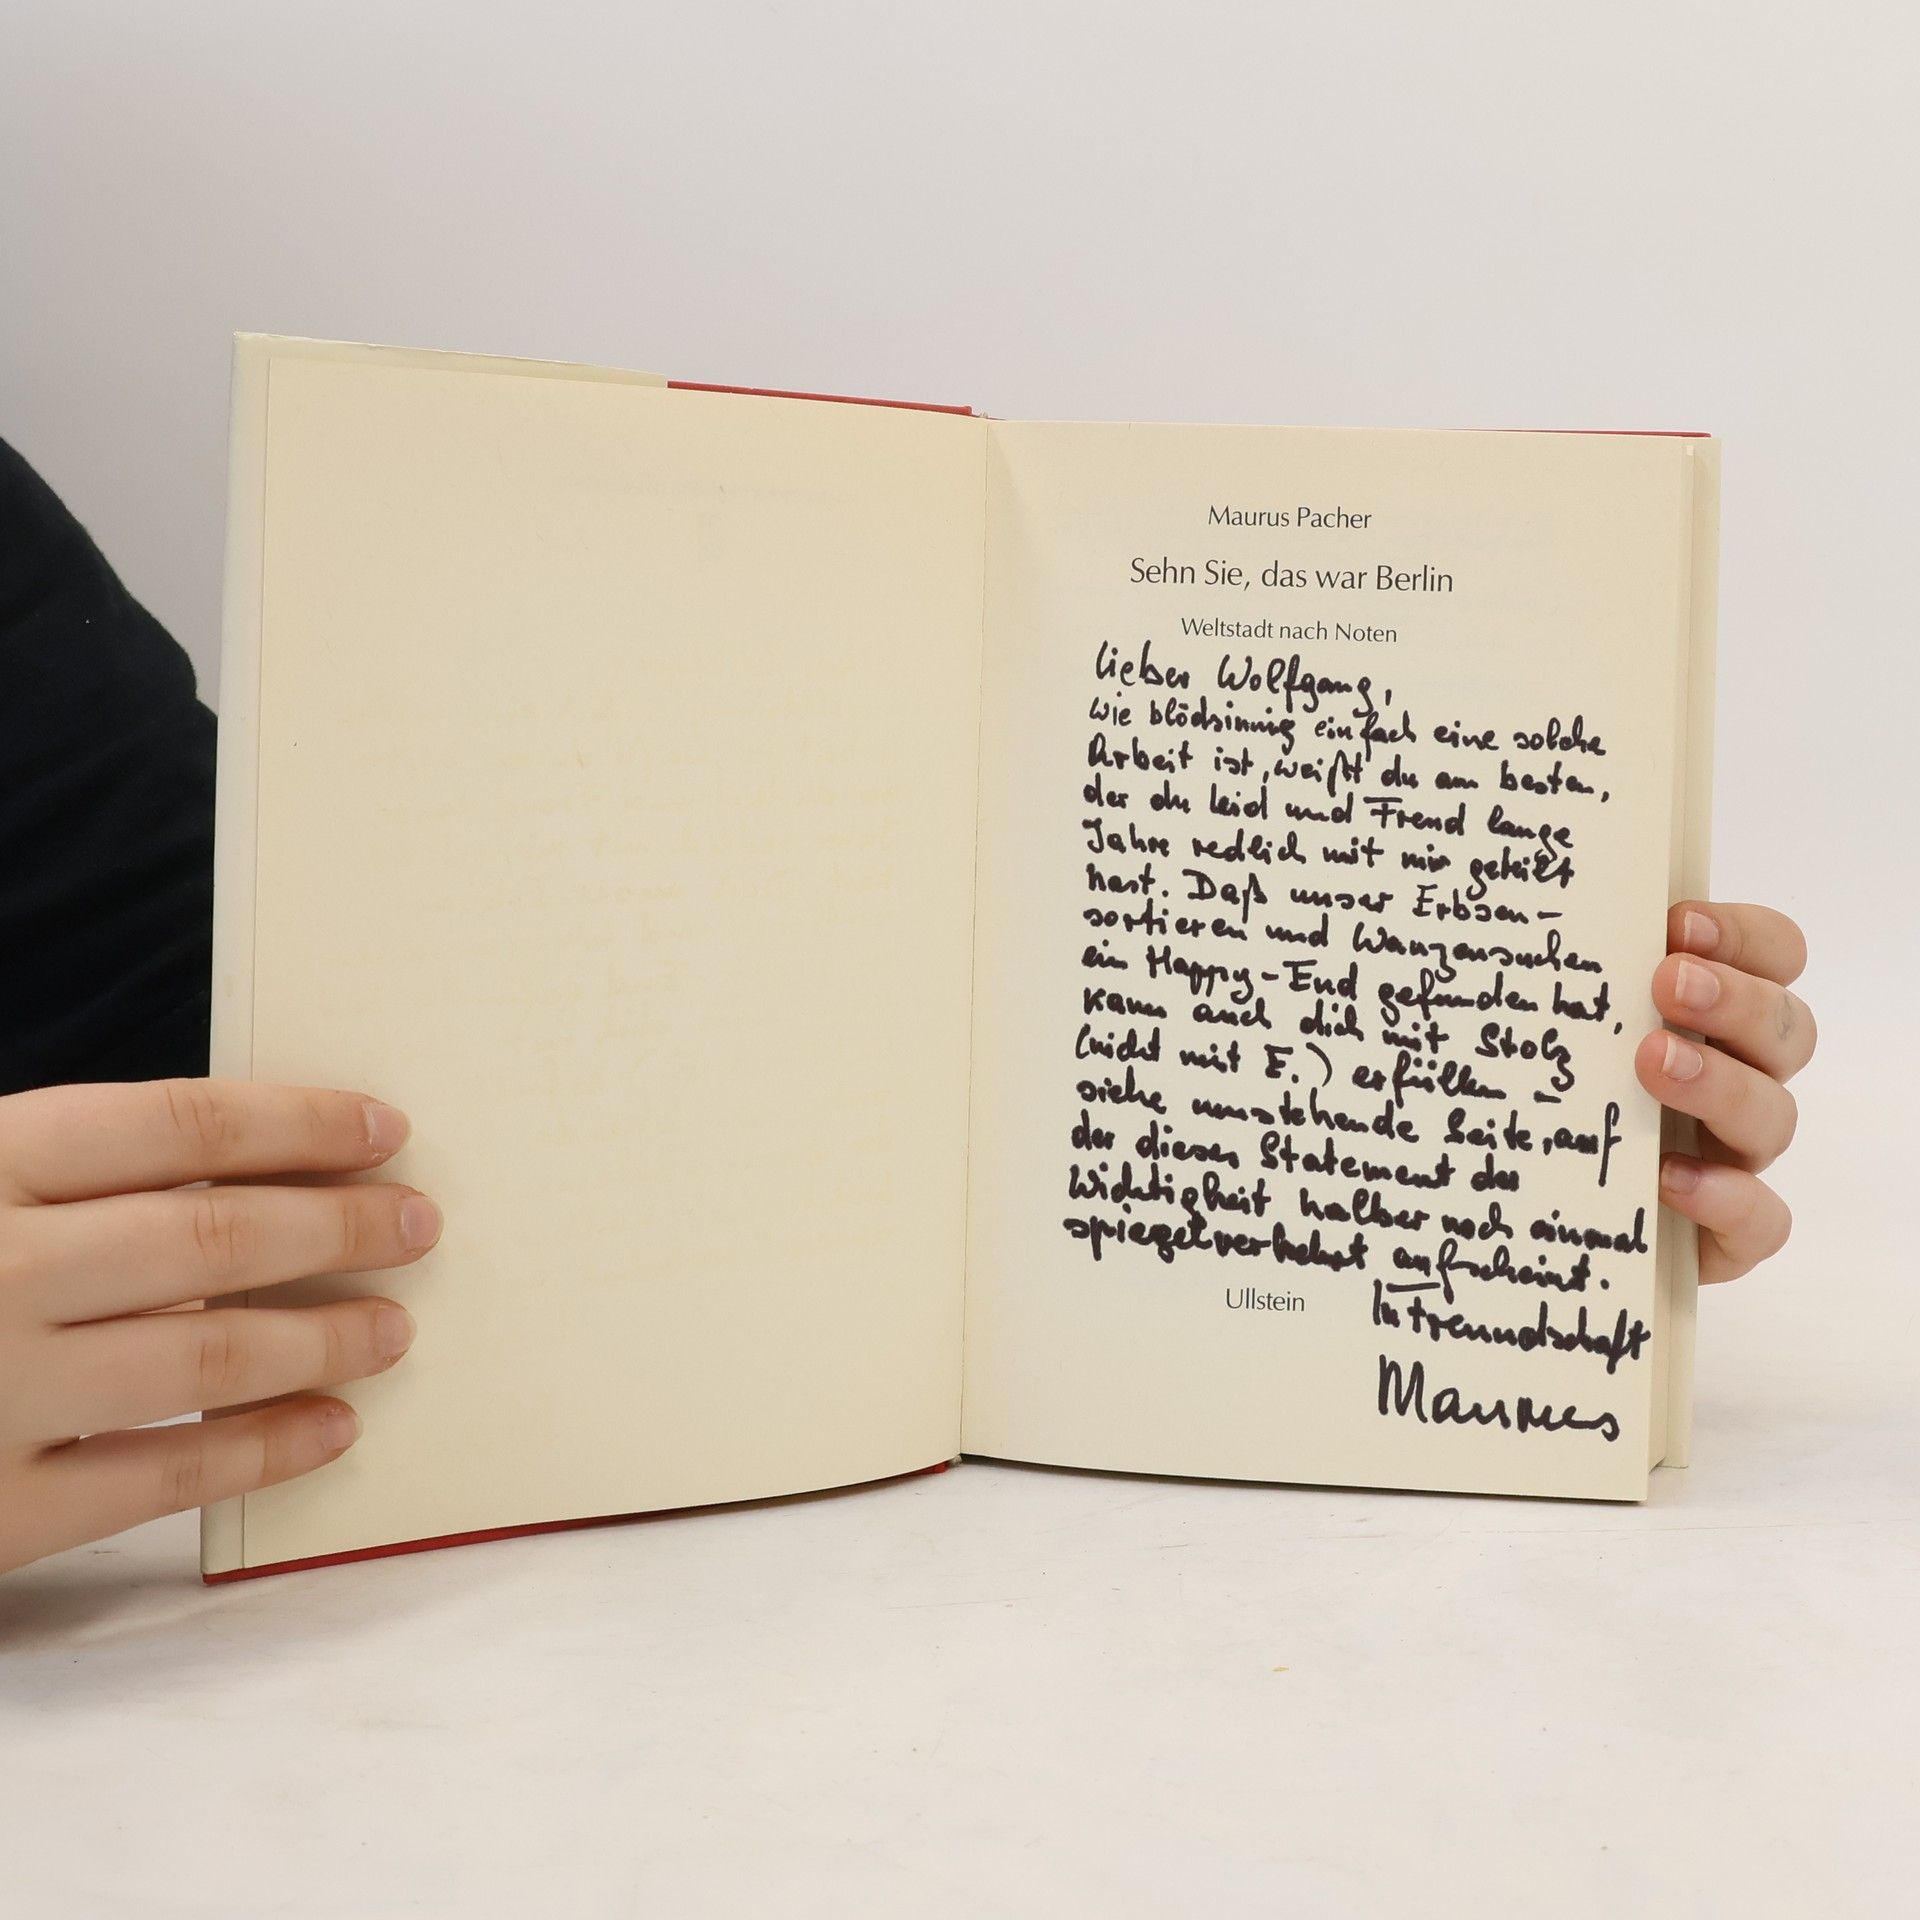 Maurus Pacher
Sehn Sie, das war Berlin
Weltstadt nach Noten
Lieber Wolfgang,
wie blödsinnig einfach eine solche
Arbeit ist, weißt du am besten,
der du Leid und Freud lange
Jahre redlich mit mir geteilt
hast. Daß unser Erbsen-
sortieren und Wanzensuchen
ein Happy-End gefunden hat,
kann auch dich mit Stolz
(nicht mit E.) erfüllen –
siehe umstehende Seite, auf
der dieses Statement der
Wichtigkeit halber noch einmal
spiegelverkehrt aufscheint.
Ullstein
In Freundschaft
Maurus